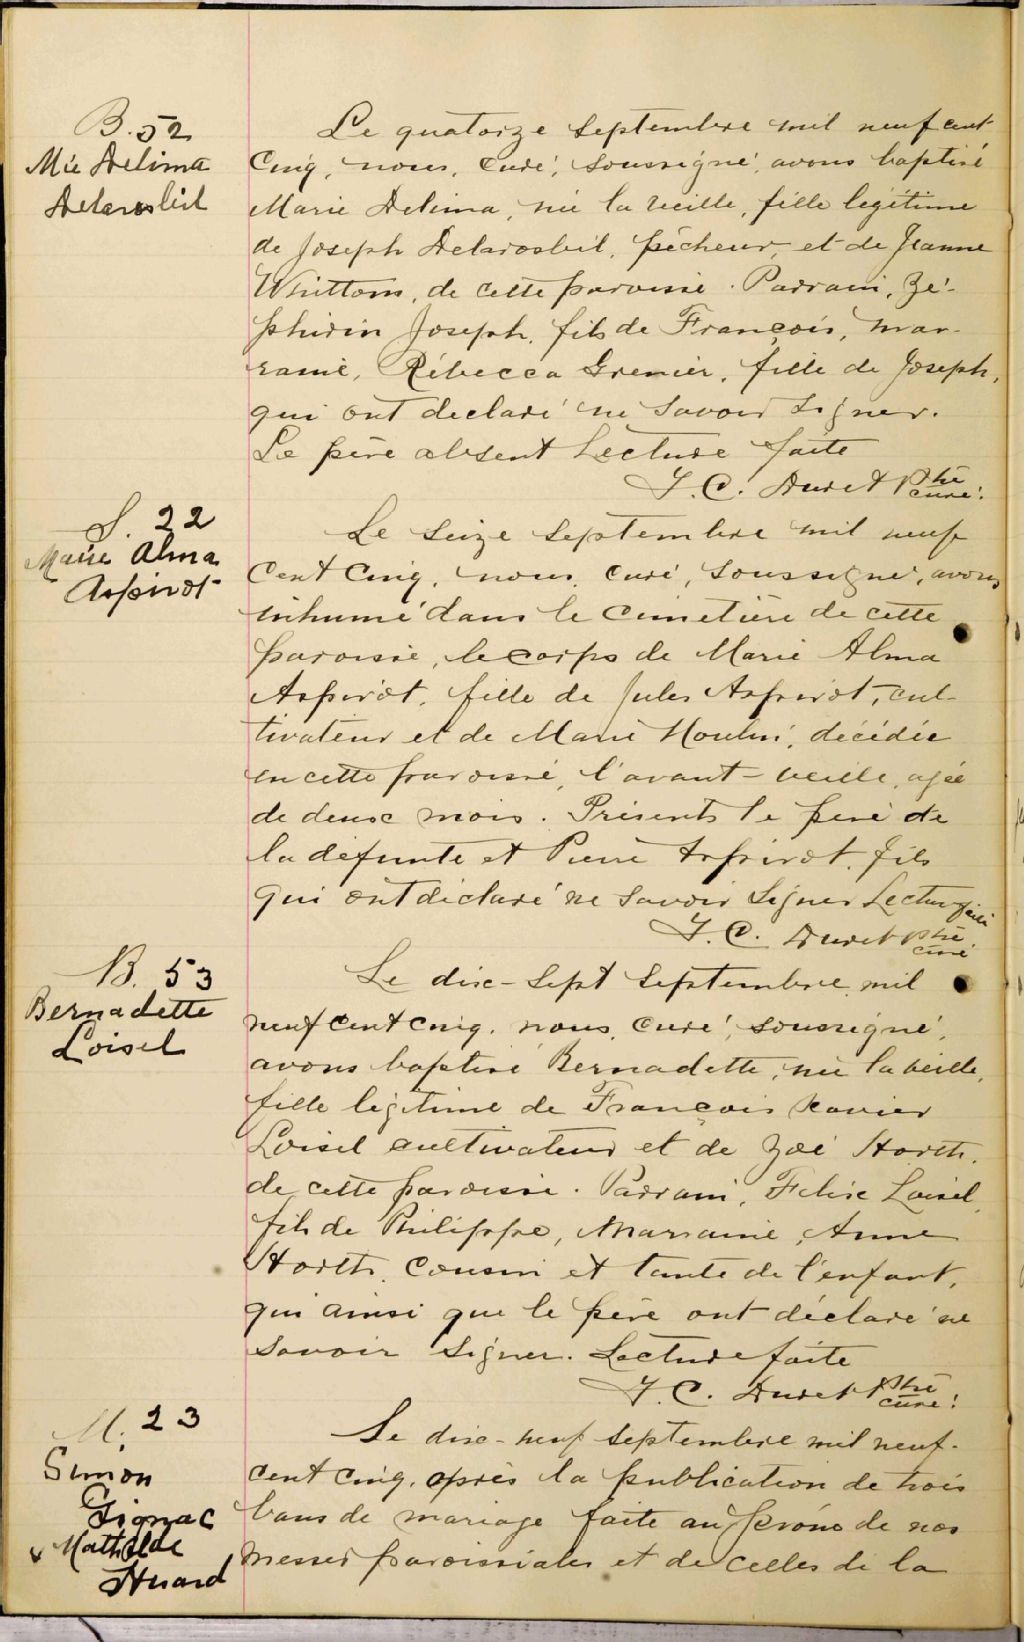 B. 52
Mie Delima
Delarosbil
Le quatorze septembre mil neuf cent
Cinq, nous, curé, soussigné, avons baptisé
Marie Delima, née la veille, fille légitime
de Joseph Delarosbil, pêcheur, et de Jeanne
Whittom, de cette paroisse. Parrain, Zé-
phirin Joseph, fils de François, mar-
raine, Rébecca Grenier, fille de Joseph,
qui ont déclaré ne savoir signer.
Le père absent Lecture faite
J. C. ptre
curé.
S. 22
Marie Alma
Aspirot
Le seize septembre mil neuf
cent cinq, nous, curé, soussigné, avons
inhumé dans le cimetière de cette
paroisse, le corps de Marie Alma
Aspirot, fille de Jules Aspirot, cul-
tivateur et de Marie Moulin, décédée
en cette paroisse, l'avant-veille, agée
de deux mois. Présents le père de
la défunte et Pierre Aspirot, fils
qui ont déclaré ne savoir signer Lecture faite
J. C. ptre
curé
B. 53
Bernadette
Loisel
Le dix-sept septembre mil
neuf cent cinq, nous, curé, soussigné,
avons baptisé Bernadette, née la veille,
fille légitime de François Xavier
Loisel cultivateur et de Zoé Horth,
de cette paroisse. Parrain, Felix Loisel,
fils de Philippe, Marraine, Anne
Horth, cousin et tante de l'enfant,
qui ainsi que le père ont déclaré ne
savoir signer. Lecture faite
J. C. ptre
curé.
M. 23
Simon
Gignac
& Mathilde
Huard
Le dix-neuf septembre mil neuf-
cent cinq, après la publication de trois
bans de mariage faite au prône de nos
messes paroissiales et de celles de la